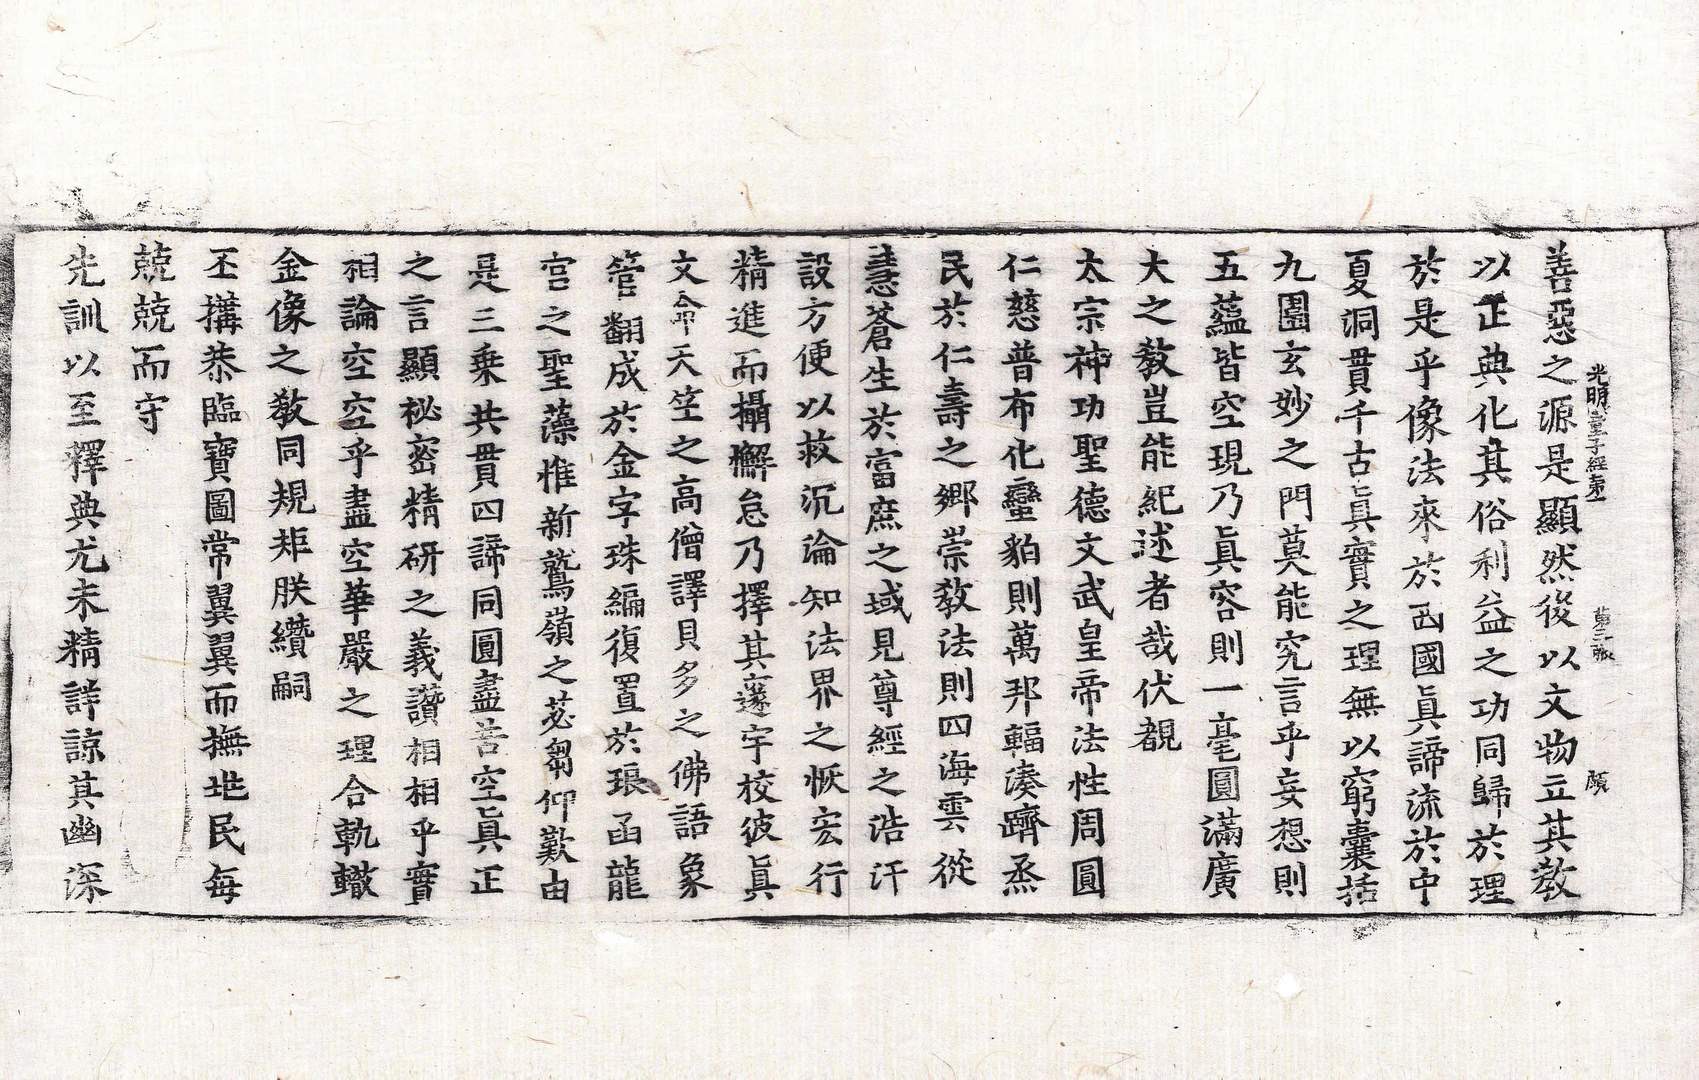 光明童子經 第二張 願
善惡之源是顯然後以文物立其敎
以正典化其俗利益之功同歸於理
於是乎像法來於西國眞諦流於中
夏洞貫千古眞實之理無以窮囊括
九圍玄妙之門莫能究言乎妄想則
五蘊皆空現乃眞容則一毫圓滿廣
大之敎豈能紀述者哉伏覩
太宗神功聖德文武皇帝法性周圓
仁慈普布化蠻貊則萬邦輻湊躋烝
民於仁壽之鄉崇敎法則四海雲從
惠蒼生於富庶之域見尊經之浩汗
設方便以救沉淪知法界之恢宏行
精進而攝懈怠乃擇其邃宇校彼眞
文命天竺之高僧譯貝多之佛語象
管翻成於金字珠編復置於琅函龍
宮之聖藻惟新鷲嶺之苾芻仰歎由
是三乗共貫四諦同圓盡苦空眞正
之言顯祕密精研之義讚相相乎實
相論空空乎盡空華嚴之理合軌轍
金像之敎同規矩朕纘嗣
丕搆恭臨寶圖常翼翼而撫地民每
兢兢而守
先訓以至釋典尤未精詳諒其幽深